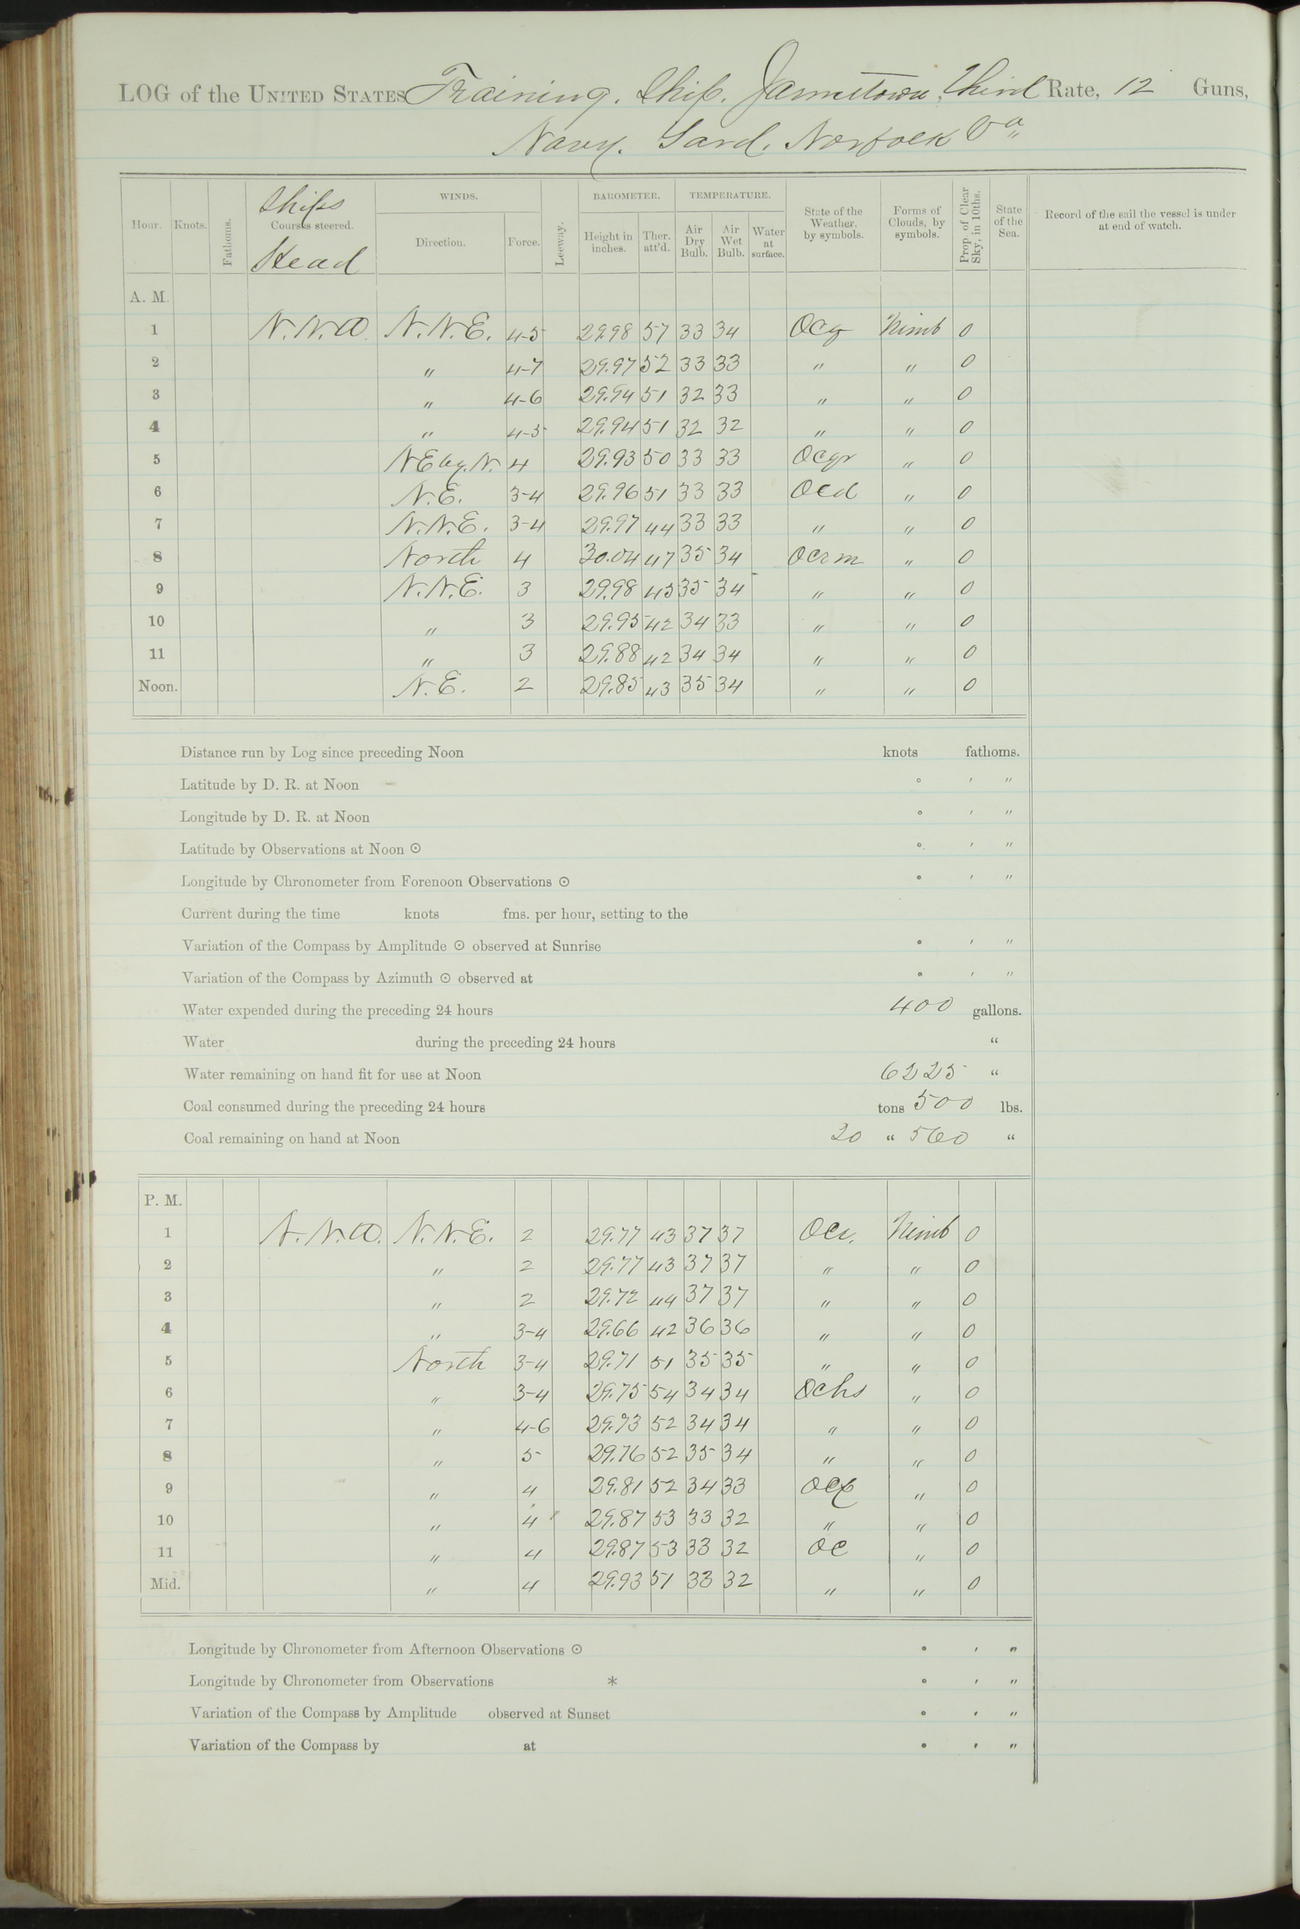 LOG of the UNITED STATES Training. Ship. Jamestown, Third Rate, 12 Guns,
Navy. Yard. Norfolk Va
Hour. Knots. Fathoms. Ships Courses steered. Head WINDS. Direction. Force. Leeway. BAROMETER. Height in inches. Ther. att'd. TEMPERATURE. Air Dry Bulb. Air Wet Bulb. Water at surface. State of the Weather, by symbols. Forms of Clouds, by symbols. Prop. of Clear Sky, in 10ths. State of the Sea. Record of the sail the vessel is under at end of watch.
A. M.
1 N.N.W. N.N.E. 4-5 29.98 57 33 34 Ocg Nimb 0
2 " 4-7 29.97 52 33 33 " " 0
3 " 4-6 29.94 51 32 33 " " 0
4 " 4-5 29.94 51 32 32 " " 0
5 NEby.N. 4 29.93 50 33 33 Ocgr " 0
6 N.E. 3-4 29.96 51 33 33 Ocd " 0
7 N.N.E. 3-4 29.97 44 33 33 " " 0
8 North 4 30.04 47 35 34 Ocrm " 0
9 N.N.E. 3 29.98 45 35 34 " " 0
10 " 3 29.95 42 34 33 " " 0
11 " 3 29.88 42 34 34 " " 0
Noon. N.E. 2 29.85 43 35 34 " " 0
Distance run by Log since preceding Noon knots fathoms.
Latitude by D. R. at Noon ° ' "
Longitude by D. R. at Noon ° ' "
Latitude by Observations at Noon ☉ ° ' "
Longitude by Chronometer from Forenoon Observations ☉ ° ' "
Current during the time knots fms. per hour, setting to the
Variation of the Compass by Amplitude ☉ observed at Sunrise ° ' "
Variation of the Compass by Azimuth ☉ observed at ° ' "
Water expended during the preceding 24 hours 400 gallons.
Water during the preceding 24 hours "
Water remaining on hand fit for use at Noon 6225 "
Coal consumed during the preceding 24 hours tons 500 lbs.
Coal remaining on hand at Noon 20 " 560 "
P. M.
1 N.N.W. N.N.E. 2 29.77 43 37 37 Ocr. Nimb 0
2 " 2 29.77 43 37 37 " " 0
3 " 2 29.72 44 37 37 " " 0
4 " 3-4 29.66 42 36 36 " " 0
5 North 3-4 29.71 51 35 35 " " 0
6 " 3-4 29.75 54 34 34 Ochs " 0
7 " 4-6 29.73 52 34 34 " " 0
8 " 5 29.76 52 35 34 " " 0
9 " 4 29.81 52 34 33 " 0
10 " 4 29.87 53 33 32 " " 0
11 " 4 29.87 53 33 32 OC " 0
Mid. " 4 29.93 51 33 32 " " 0
Longitude by Chronometer from Afternoon Observations ☉ ° ' "
Longitude by Chronometer from Observations * ° ' "
Variation of the Compass by Amplitude observed at Sunset ° ' "
Variation of the Compass by at ° ' "